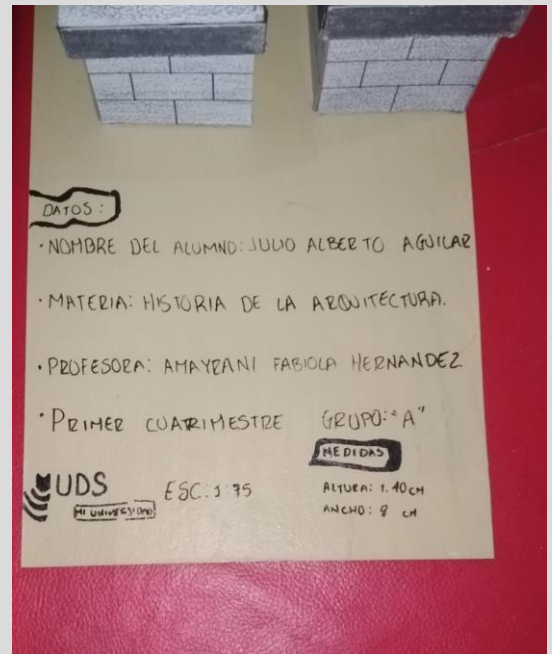 DATOS:
·NOMBRE DEL ALUMNO: JULIO ALBERTO AGUILAR
·MATERIA: HISTORIA DE LA ARQUITECTURA.
·PROFESORA: AMAYRANI FABIOLA HERNANDEZ
·PRIMER CUATRIMESTRE GRUPO:"A"
MEDIDAS
UDS ESC:1:75 ALTURA: 1.40 CM
MI UNIVERSIDAD ANCHO: 8 CM